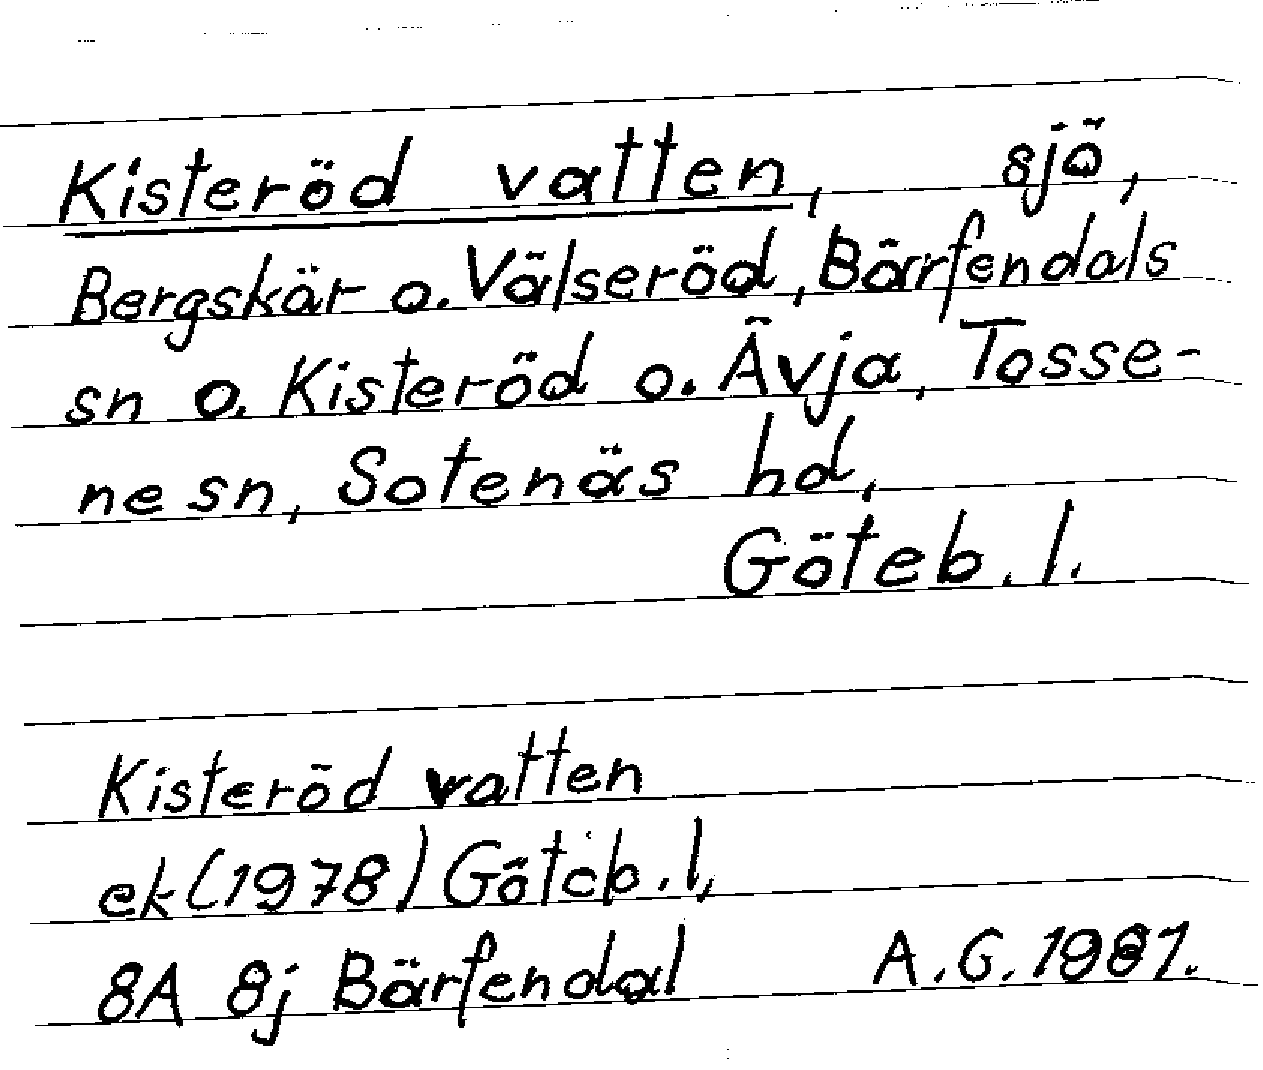 Kisteröd vatten, sjö,
Bergskär o. Välseröd, Bärfendals
sn o. Kisteröd o. Ävja, Tosse-
ne sn, Sotenäs hd,
Göteb. l.
Kisteröd vatten
ek (1978) Göteb. l,
8A 8j Bärfendal A.G. 1981.